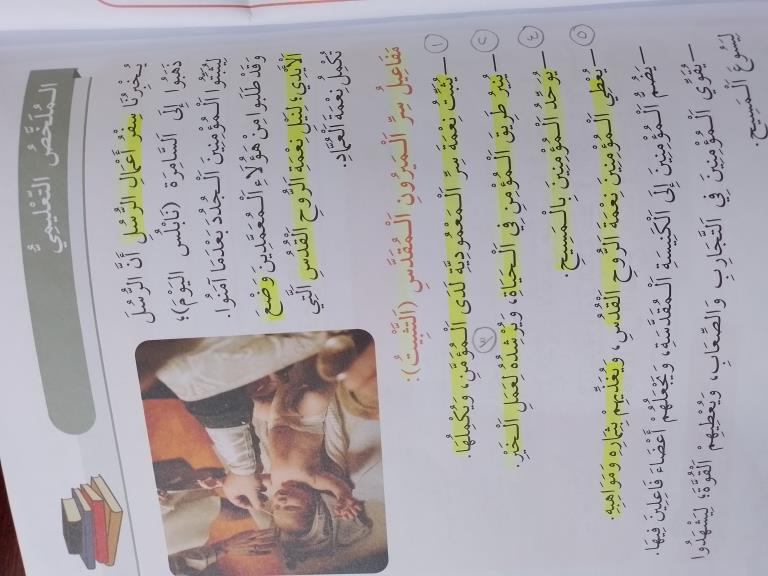 الْمُلَخَّصُ التَّعْلِيمِيُّ
يُخْبِرُنَا سِفْرُ أَعْمَالِ الرُّسُلِ أَنَّ الرُّسُلَ
ذَهَبُوا إِلَى السَّامِرَةِ (نَابْلُسَ الْيَوْمَ)؛
لِيُثَبِّتُوا الْمُؤْمِنِينَ الْجُدُدَ بَعْدَمَا آمَنُوا.
وَقَدْ طَلَبُوا مِنْ هَؤُلَاءِ الْمُعَمَّدِينَ وَضْعَ
الْأَيْدِي؛ لِنَيْلِ نِعْمَةِ الرُّوحِ الْقُدُسِ الَّتِي
تُكْمِلُ نِعْمَةَ الْعُمَّادِ.
مَفَاعِيلُ سِرِّ الْمَيْرُونِ الْمُقَدَّسِ (التَّثْبِيتُ):
١
– يُثَبِّتُ نِعْمَةَ سِرِّ الْمَعْمُودِيَّةِ لَدَى الْمُؤْمِنِ، وَيُكْمِلُهَا.
٢
– يُنِيرُ طَرِيقَ الْمُؤْمِنِ فِي الْحَيَاةِ، وَيُرْشِدُهُ لِعَمَلِ الْخَيْرِ.
٣
٤
– يُوَحِّدُ الْمُؤْمِنِينَ بِالْمَسِيحِ.
٥
– يُعْطِي الْمُؤْمِنِينَ نِعْمَةَ الرُّوحِ الْقُدُسِ، وَيُغْنِيهِمْ بِثِمَارِهِ وَمَوَاهِبِهِ.
– يَضُمُّ الْمُؤْمِنِينَ إِلَى الْكَنِيسَةِ الْمُقَدَّسَةِ، وَيَجْعَلُهُمْ أَعْضَاءً فَاعِلِينَ فِيهَا.
– يُقَوِّي الْمُؤْمِنِينَ فِي التَّجَارِبِ وَالصِّعَابِ، وَيُعْطِيهِمُ الْقُوَّةَ؛ لِيَشْهَدُوا
لِيَسُوعَ الْمَسِيحِ.